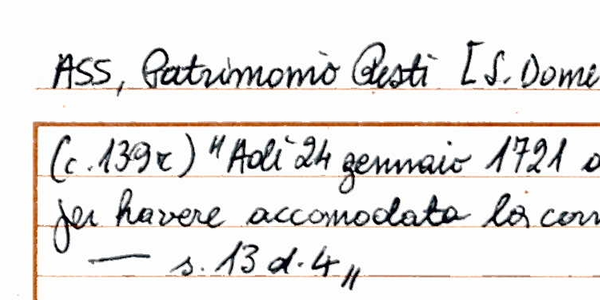 ASS, Patrimonio Resti [S. Dome
(c. 139r) "Adì 24 gennaio 1721 a
per havere accomodata la corr
— s. 13 d. 4 "